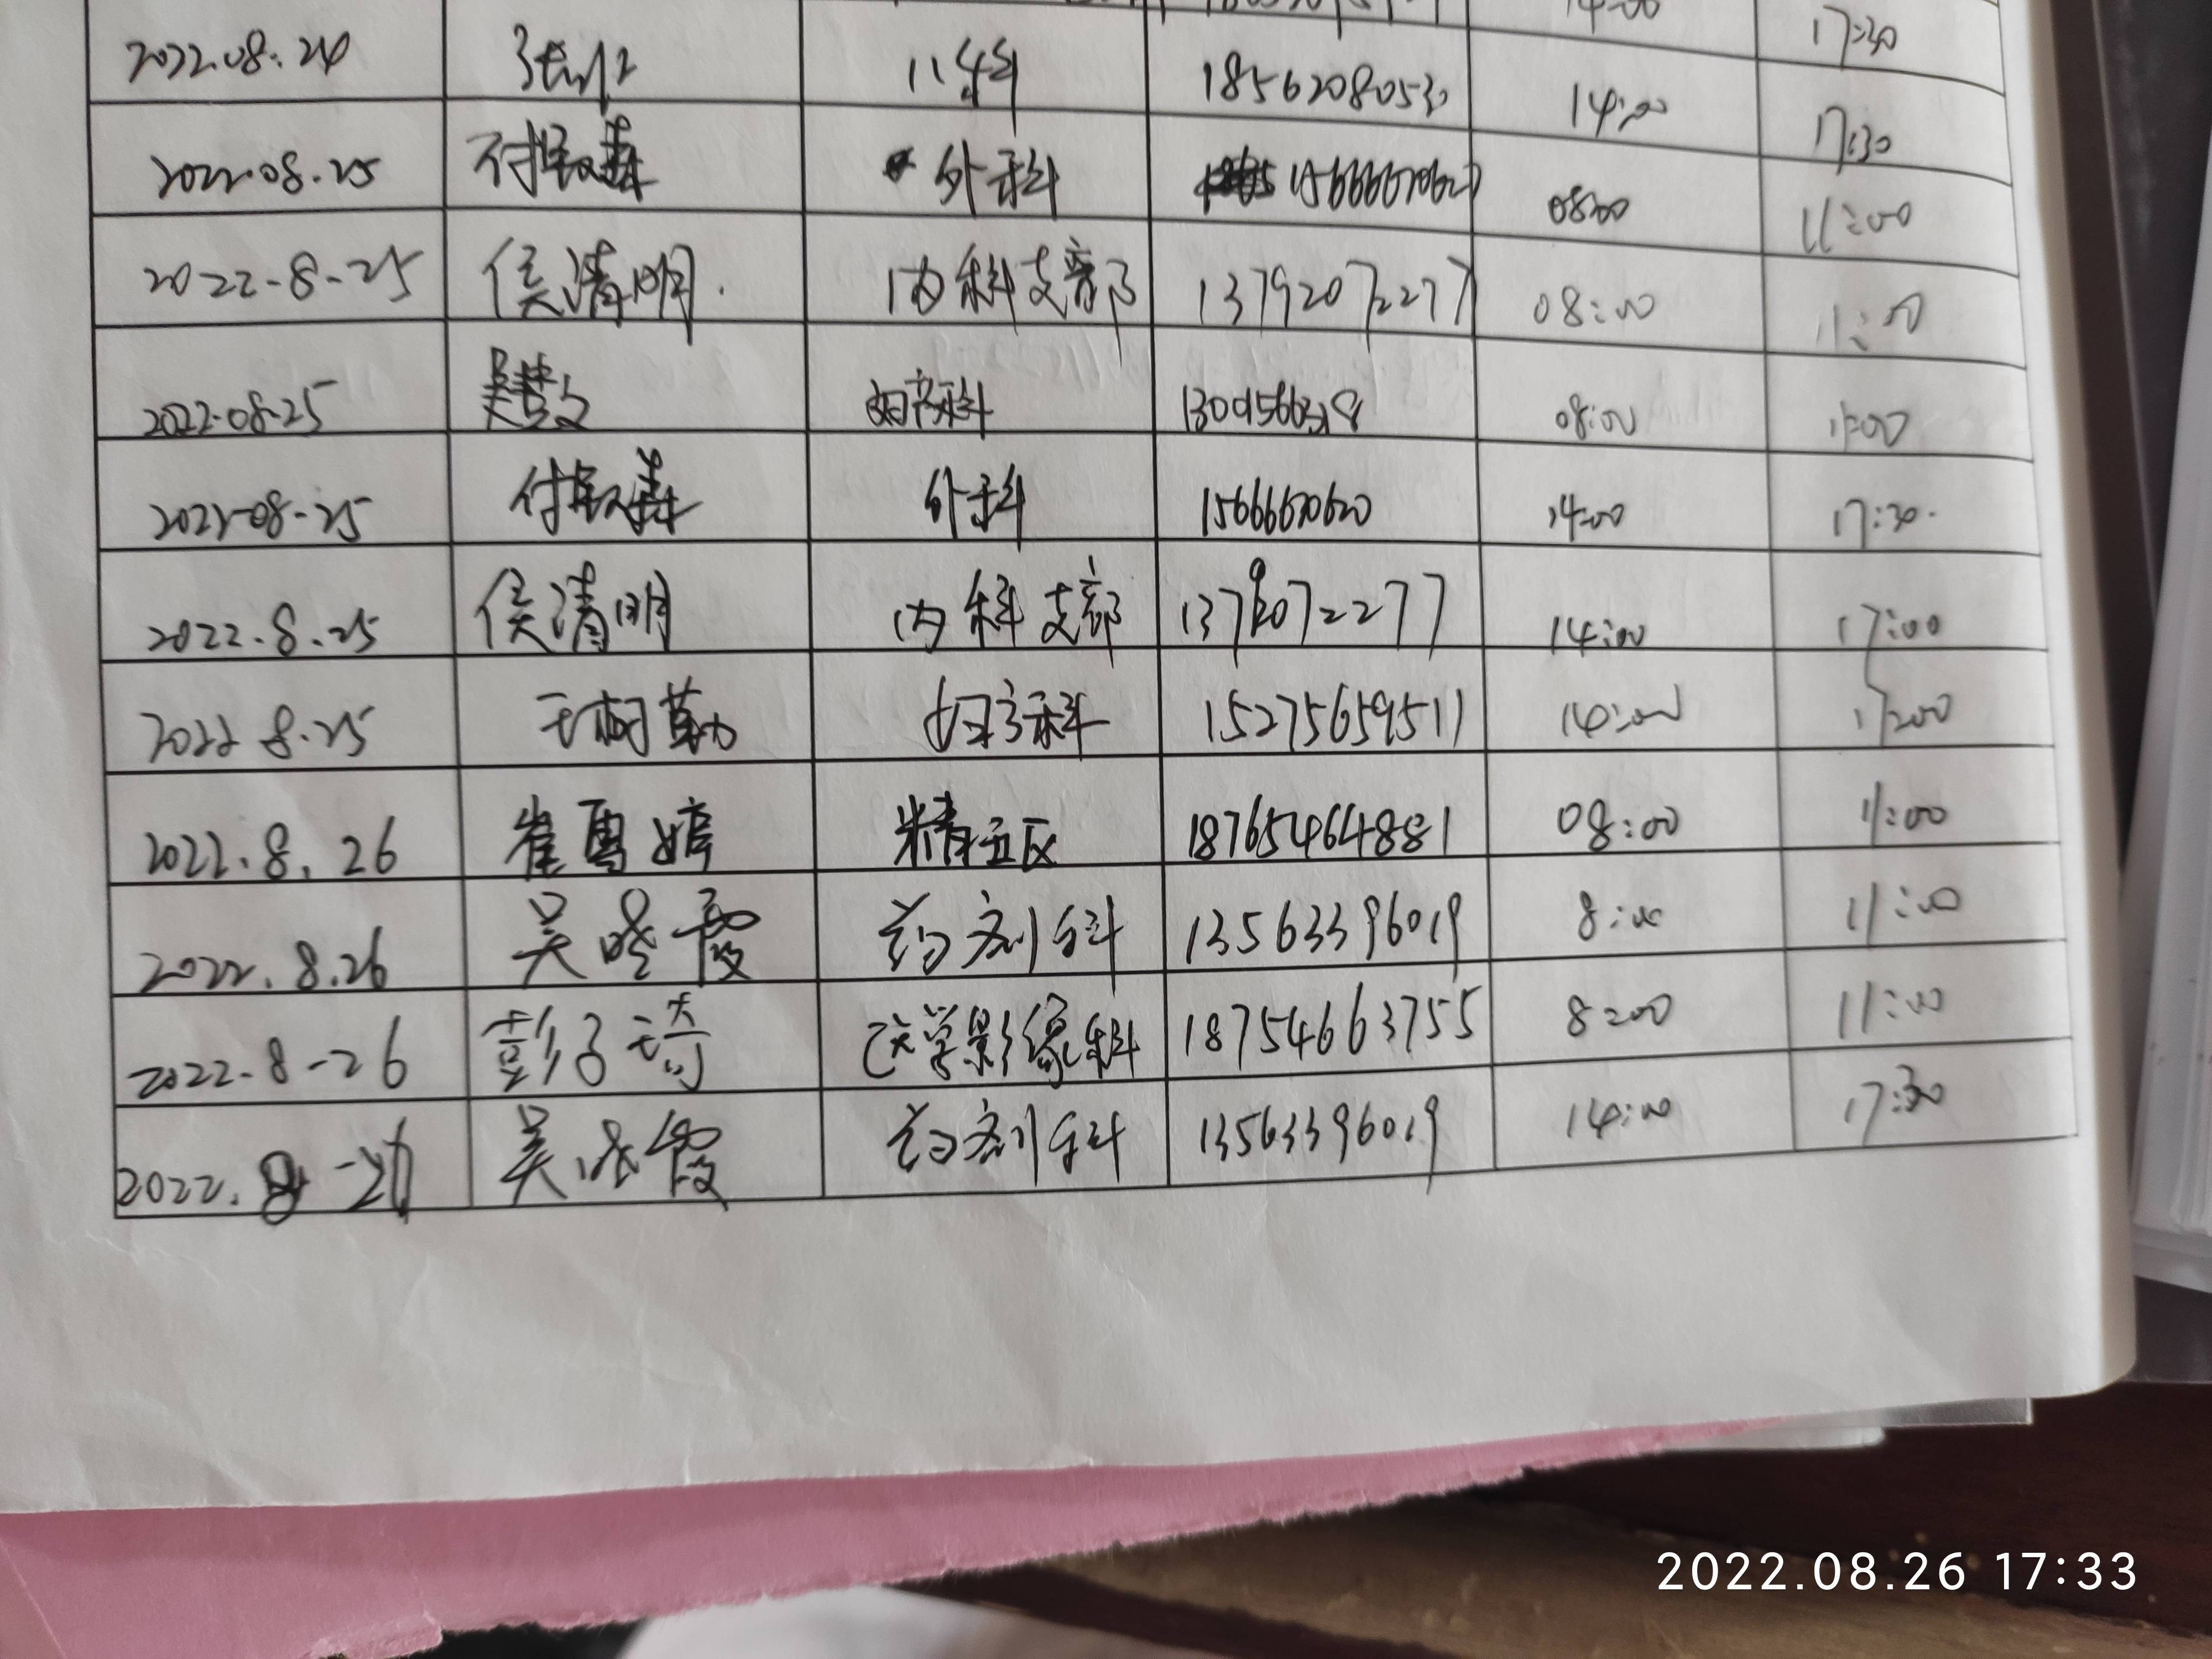 14:00
2022.08.24 儿科 18562080530 14:00 17:30
2022.08.25 外科 08:00 17:30
2022-8-25 侯清明 内科支部 13792072277 08:00 11:00
2022.08.25 吴慧文 妇产科 08:00 11:00
2022-08-25 外科 15666670620 14:00 17:30
2022.8.25 侯清明 内科支部 13792072277 14:00 17:00
2022.8.25 妇产科 15275659511 14:00 17:00
2022.8.26 崔雪婷 精五区 18765464881 08:00 11:00
2022.8.26 吴晓霞 药剂科 13563396019 8:00 11:00
2022.8-26 彭子琦 医学影像科 18754663755 8:00 11:00
2022.8-26 吴晓霞 药剂科 13563396019 14:00 17:30
2022.08.26 17:33